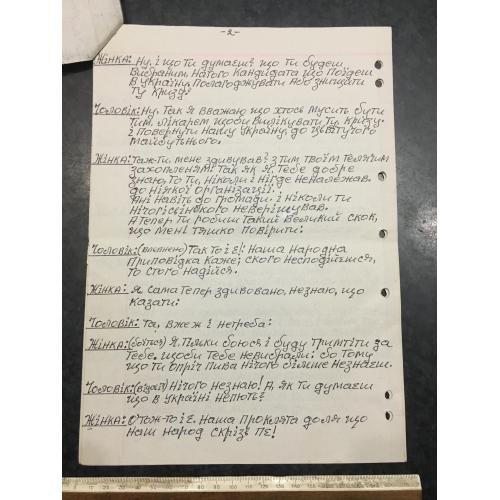 -2-
Жінка: Ну, і що Ти думаєш? що Ти будеш
Вибраним, на того Кандидата що Поїдеш
в Україну. Полагоджувати Або Знищати
ту Кризу?
Чоловік: Ну, Так Я Вважаю що хтось Мусить бути
тим, Лікарем щоби Вилікувати Ту, Кризу.
і Повернути Нашу Україну, до цвітучого
Майбутнього.
Жінка: Таж-ти, мене здивував! З тим Твоїм Телячим
захопленям. Так як Я, Тебе добре
знаю, то Ти, Ніколи і Нігде Неналежав.
до Ніякої Організації:
Ані Навіть до Громади. і Ніколи ти
Нічогісінького Невершував.
А Тепер Ти робиш Такий Великий скок,
що Мені Тяшко Повірити:
Чоловік: (впевнено) Так То і Є!: Наша Народна
Приповідка Каже; ского Несподієшся,
то стого Надійся.
Жінка: Я, Сама Тепер Здивовано, Незнаю, що
казати:
Чоловік: Та, Вжеж і Нетреба:
Жінка: (боїться) Я, Тілики боюся і буду Тримтіти за
Тебе. щоби Тебе Невибрали: бо Тому
що Ти опріч Пива Нічого більше Незнаєш.
Чоловік: Нічого Незнаю! А, як Ти думаєш
що в Україні Непють?
Жінка: Отож-то і Є. Наша Проклята доля що
Наш Народ скрізь ПЄ!